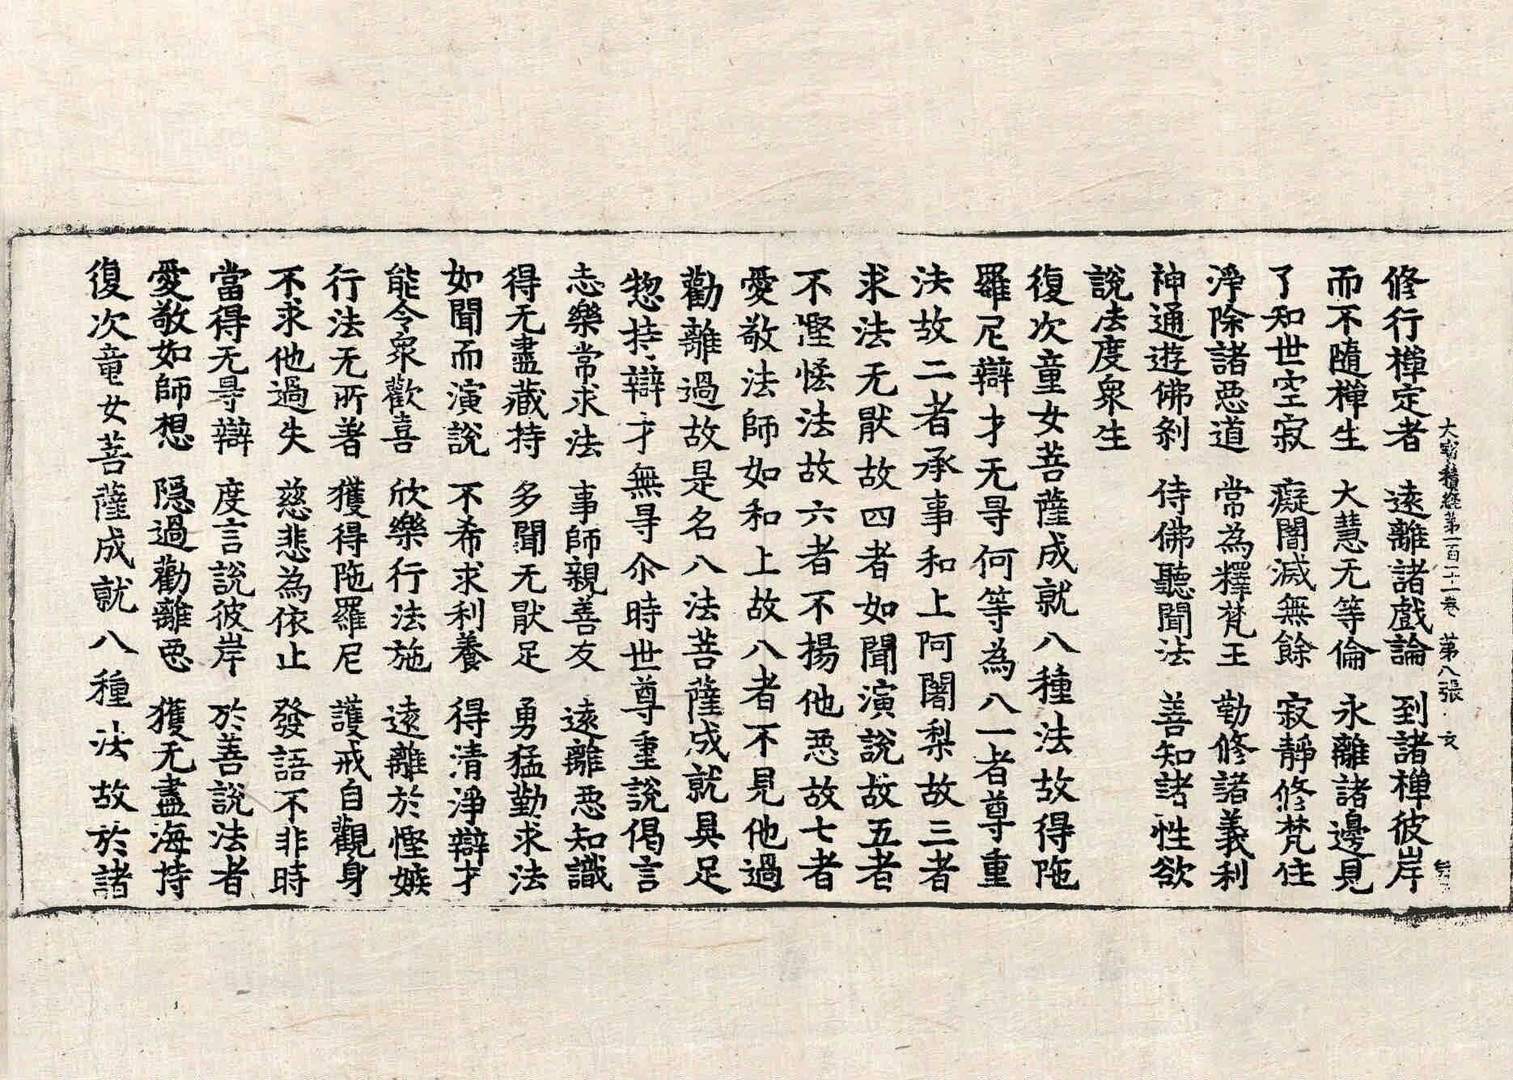 大寶積經第一百一十一卷 第八張 亥
修行禅定者 遠離諸戲論 到諸禅彼岸
而不隨禅生 大慧无等倫 永離諸邊見
了知世空寂 癡闇滅無餘 寂靜修梵住
淨除諸惡道 常為釋梵王 勤修諸義利
神通遊佛刹 侍佛聽聞法 善知諸性欲
說法度衆生
復次童女菩薩成就八種法故得陁
羅尼辯才无㝵何等為八一者尊重
法故二者承事和上阿闍梨故三者
求法无猒故四者如聞演說故五者
不慳悋法故六者不揚他惡故七者
愛敬法師如和上故八者不見他過
勸離過故是名八法菩薩成就具足
惣持辯才無㝵尒時世尊重說偈言
志樂常求法 事師親善友 遠離惡知識
得无盡藏持 多聞无猒足 勇猛勤求法
如聞而演說 不希求利養 得清淨辯才
能令衆歡喜 欣樂行法施 遠離於慳嫉
行法无所著 獲得陁羅尼 護戒自觀身
不求他過失 慈悲為依止 發語不非時
當得无㝵辯 度言說彼岸 於善說法者
愛敬如師想 隱過勸離惡 獲无盡海持
復次童女菩薩成就八種法故於諸